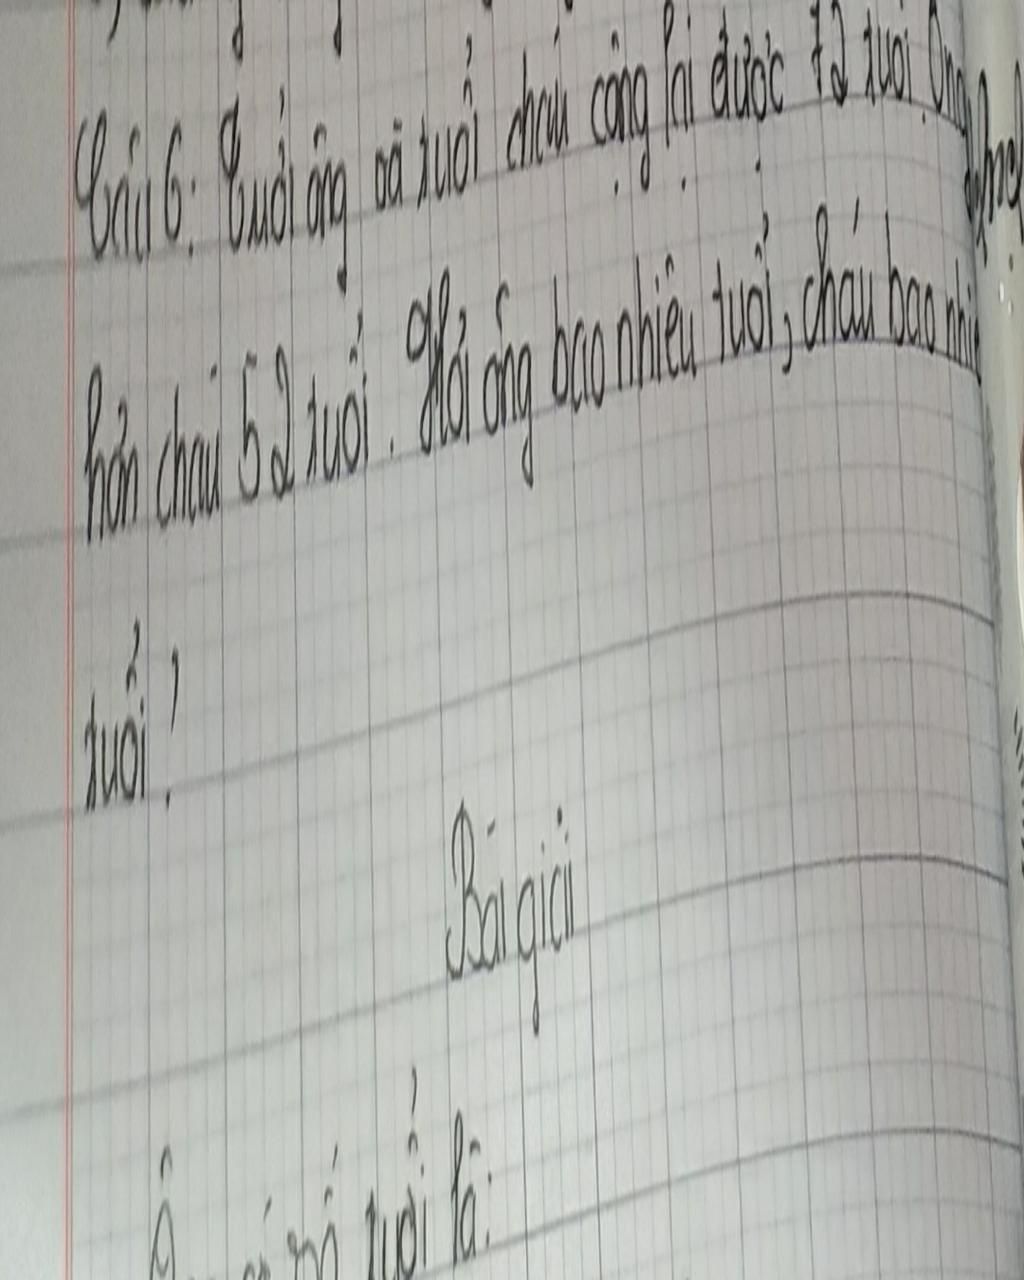 Câu 6: Tuổi ông và tuổi cháu cộng lại được 72 tuổi. Ông
hơn cháu 52 tuổi. Hỏi ông bao nhiêu tuổi, cháu bao
tuổi?
Bài giải
số tuổi là: